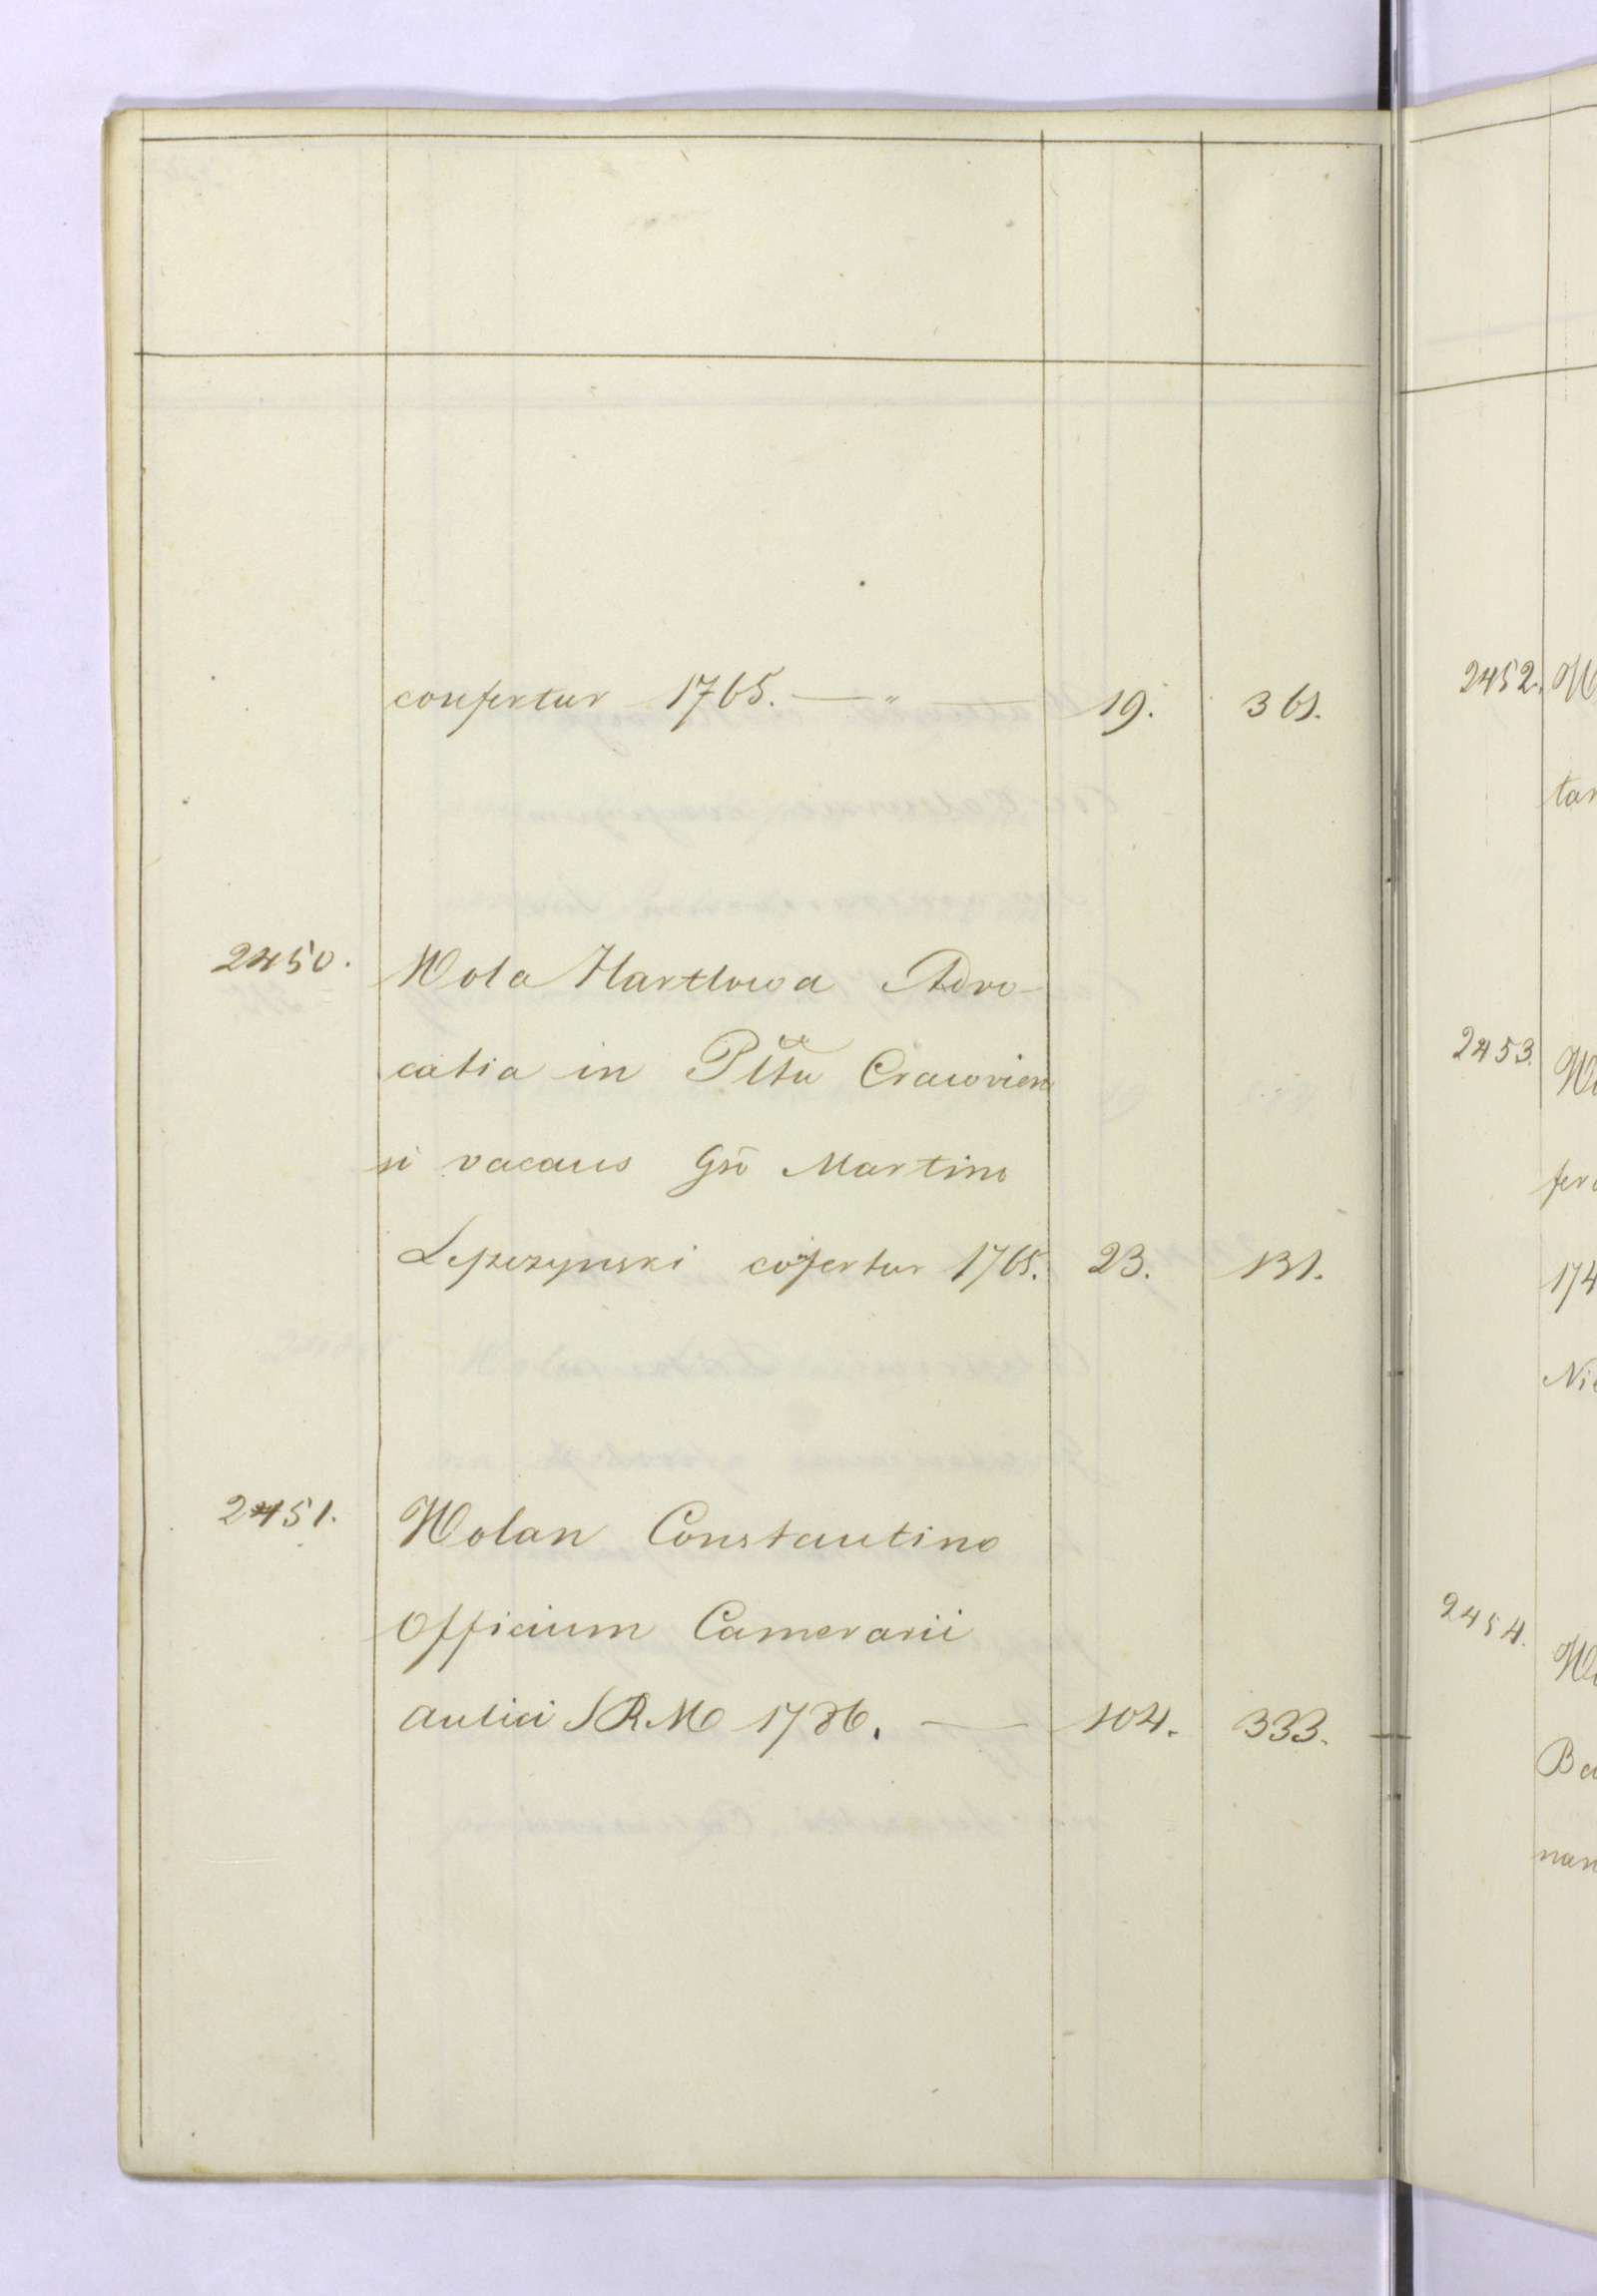 confertur 1765. — " — 19. 361.
2450. Wola Hartlowa Advo-
catia in Pttu Cracovien
si vacans Gso Martino
Lepszynski cofertur 1765. 23. 131.
2451. Wolan Constantino
Officium Camerarii
aulici SRM 1786. — 104. 333.
2452. W
tan
2453. Wo
fer
174
Nie
2454. Wo
Ba
nan